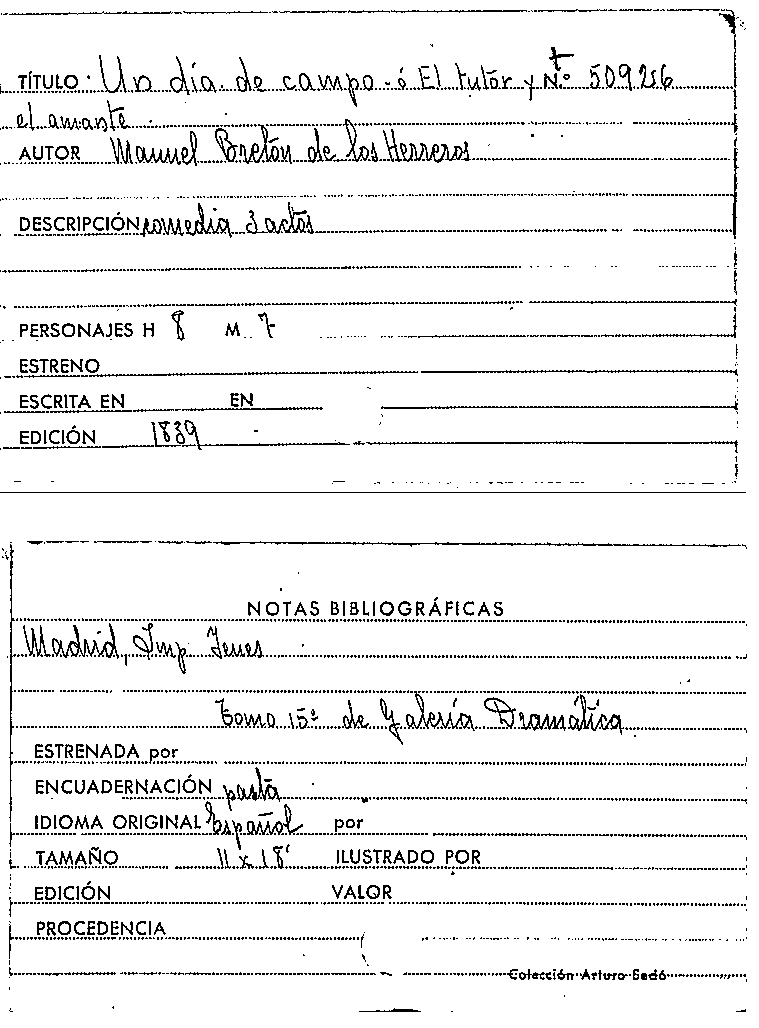 TÍTULO · Un día de campo - ó El tutor y Nº 509256
el amante
AUTOR Manuel Bretón de los Herreros
DESCRIPCIÓN comedia 3 actos
PERSONAJES H 8 M 7
ESTRENO
ESCRITA EN EN
EDICIÓN 1839
NOTAS BIBLIOGRÁFICAS
Madrid, Imp Yenes
Tomo 15º de Galería Dramática
ESTRENADA por
ENCUADERNACIÓN pasta
IDIOMA ORIGINAL Español por
TAMAÑO 11 x 18' ILUSTRADO POR
EDICIÓN VALOR
PROCEDENCIA
Colección Arturo Sedó